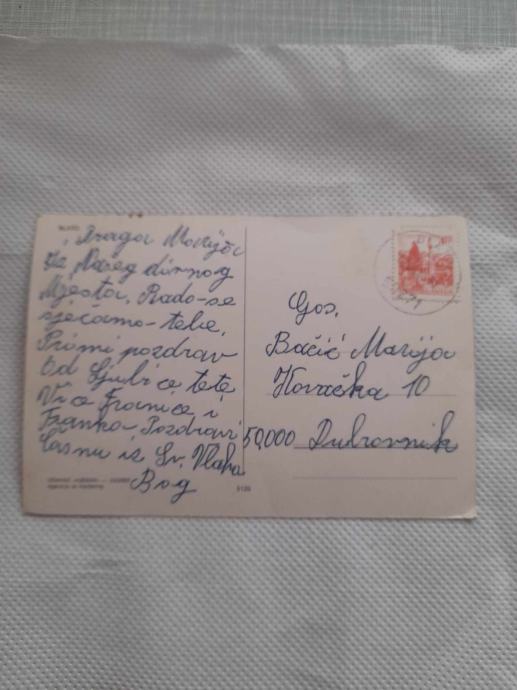 BLATO
Draga Marija
Iz Našeg divnog
Mjesta, Rado-se
sjećamo-tebe,
Primi pozdrav
Od Ljubice tete
Vice Franice i
Franka-Pozdravi
Časnu iz Sv. Vlaha
Bog
Gos.
Bačić Marija
Kovačka 10
50,000 Dubrovnik